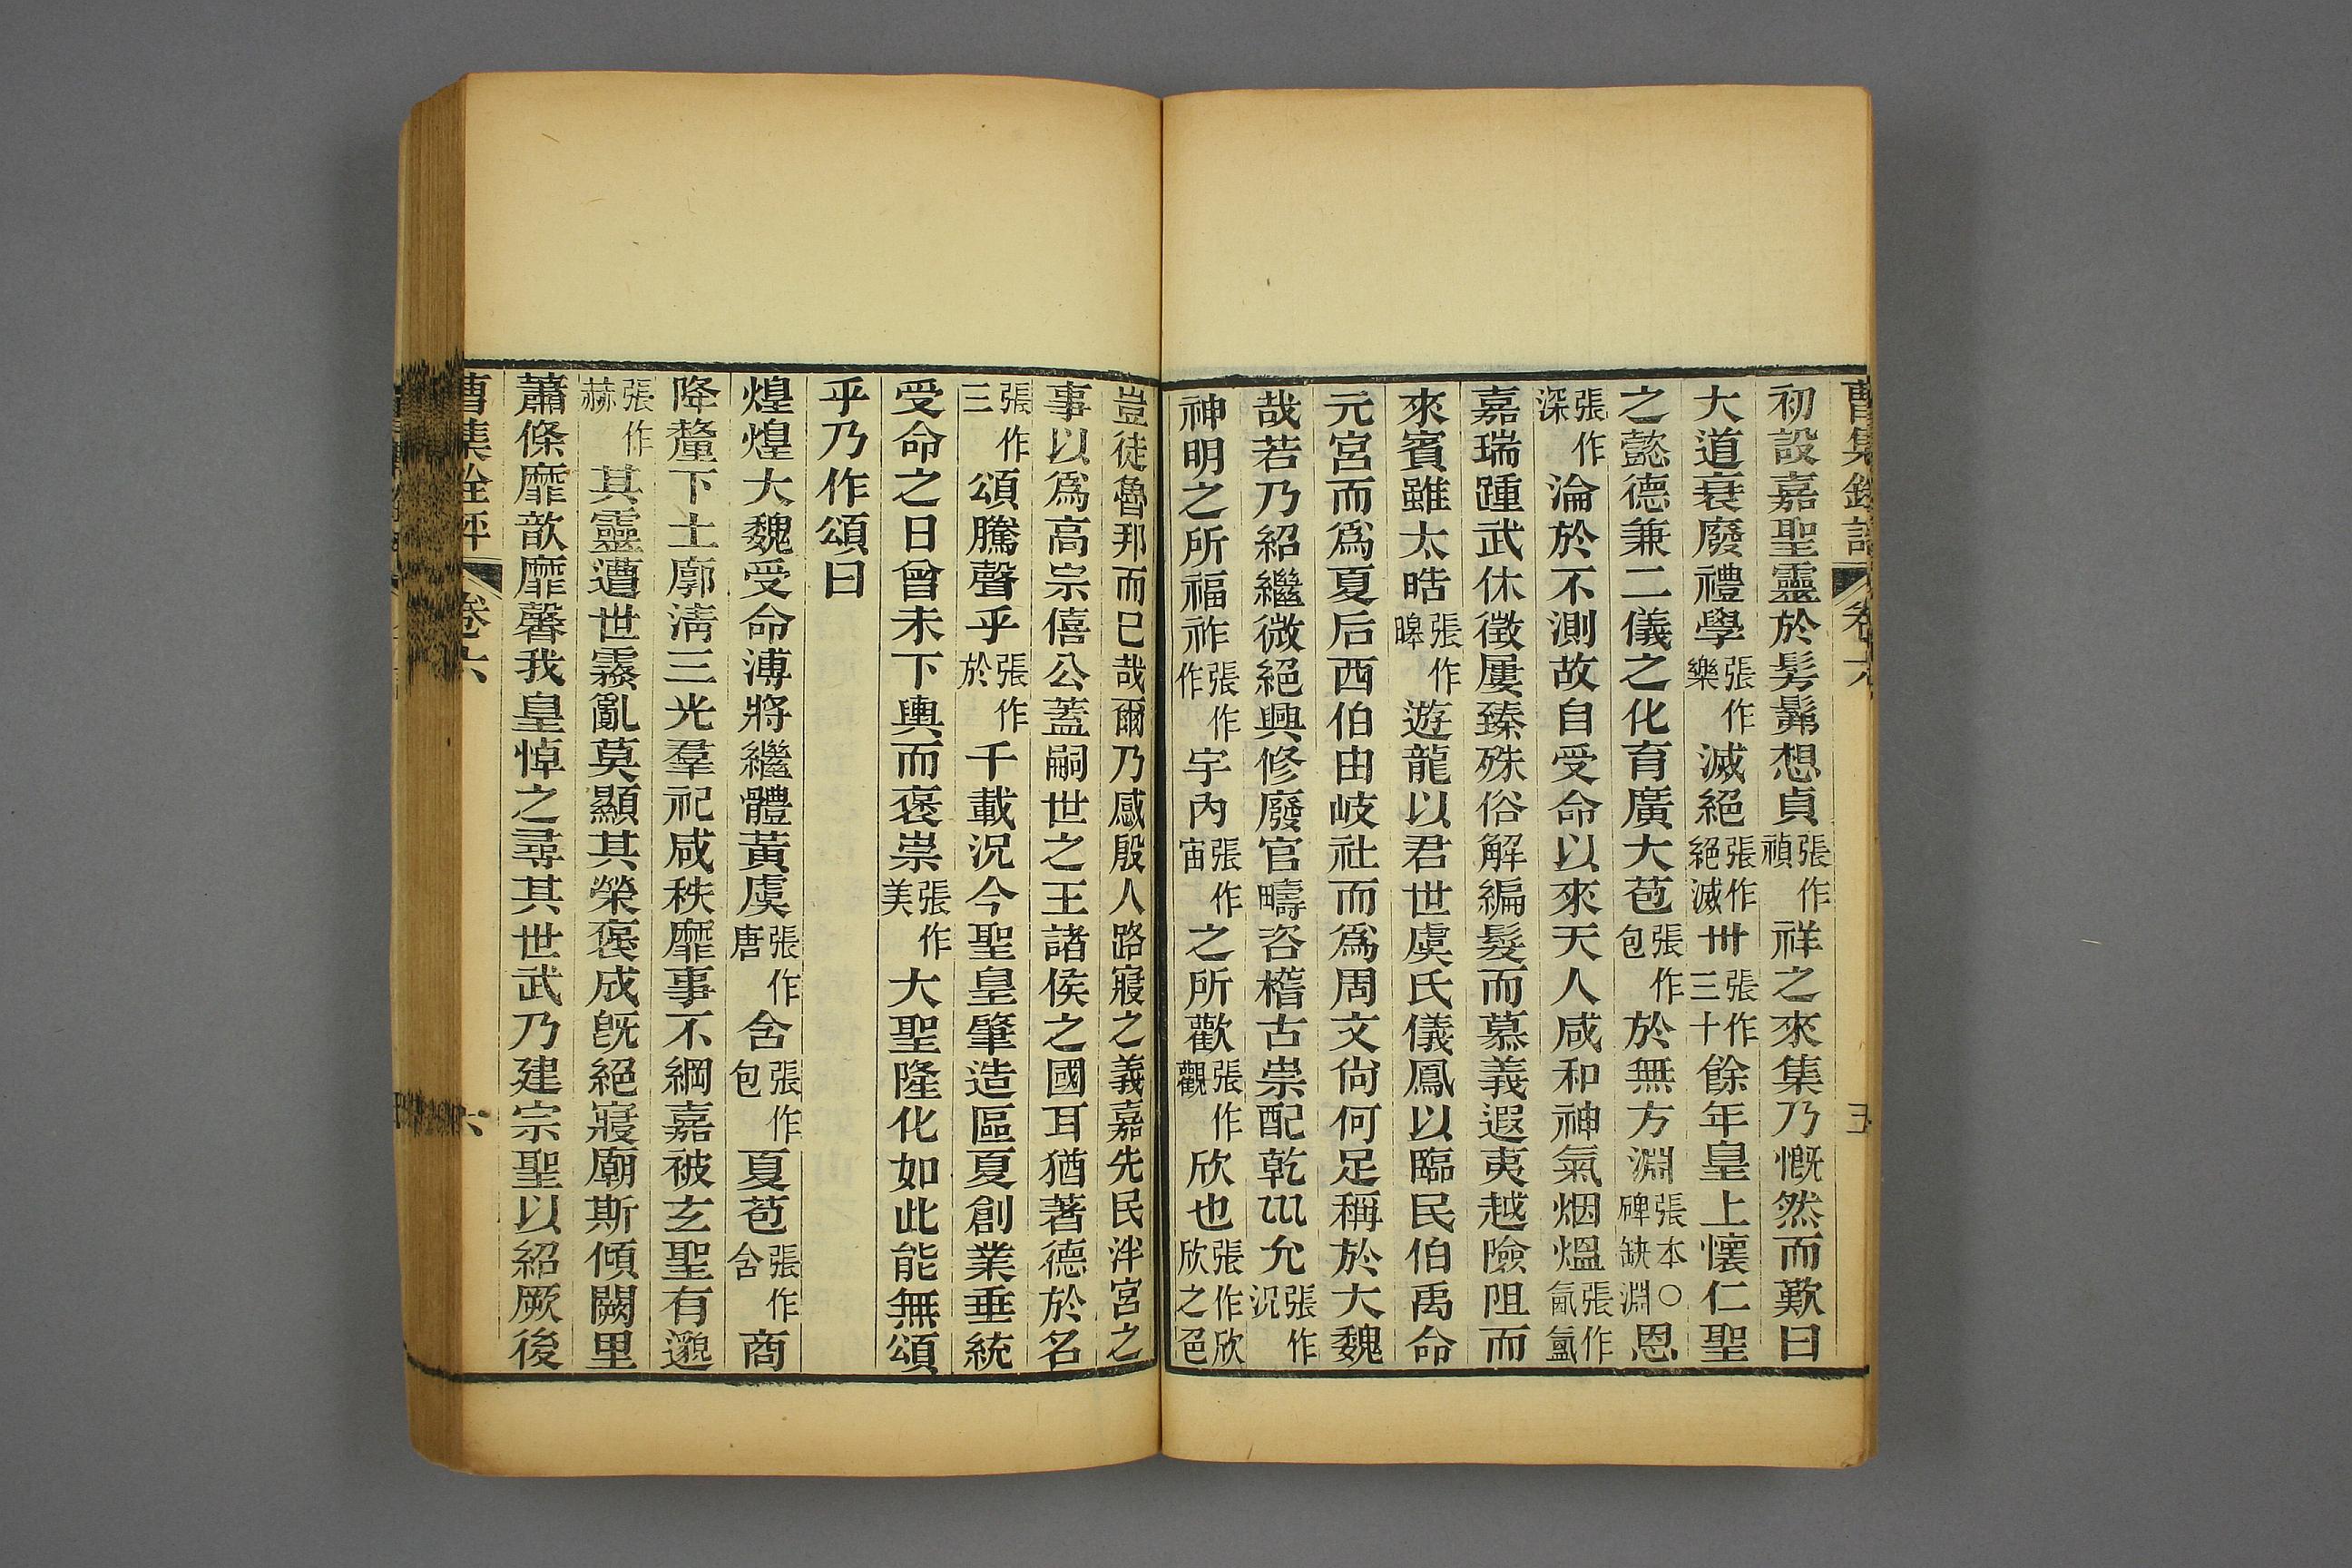 曹集銓評 卷六 五
初設嘉聖靈於髣髴想貞張作禎祥之來集乃慨然而歎曰
大道衰廢禮學張作樂滅絕張作絕滅卅張作三十餘年皇上懷仁聖
之懿德兼二儀之化育廣大苞張作包於無方淵張本○碑缺淵恩
張作深淪於不測故自受命以來天人咸和神氣烟熅張作氤氳
嘉瑞踵武休徵屢臻殊俗解編髮而慕義遐夷越險阻而
來賓雖太晧張作皞遊龍以君世虞氏儀鳳以臨民伯禹命
元宮而為夏后西伯由岐社而為周文尙何足稱於大魏
哉若乃紹繼微絕興修廢官疇咨稽古崇配乾巛允張作況
神明之所福祚張作作宇內張作宙之所歡張作觀欣也張作欣欣之色
豈徒魯邦而已哉爾乃感殷人路寢之義嘉先民泮宮之
事以為高宗僖公蓋嗣世之王諸侯之國耳猶著德於名
張作三頌騰聲乎張作於千載況今聖皇肇造區夏創業垂統
受命之日曾未下輿而褒崇張作美大聖隆化如此能無頌
乎乃作頌曰
煌煌大魏受命溥將繼體黃虞張作唐含張作包夏苞張作含商
降釐下土廓淸三光羣祀咸秩靡事不綱嘉被玄聖有邈
張作赫其靈遭世霧亂莫顯其榮褒成旣絕寢廟斯傾闕里
蕭條靡歆靡馨我皇悼之尋其世武乃建宗聖以紹厥後
曹集銓評 卷六 六